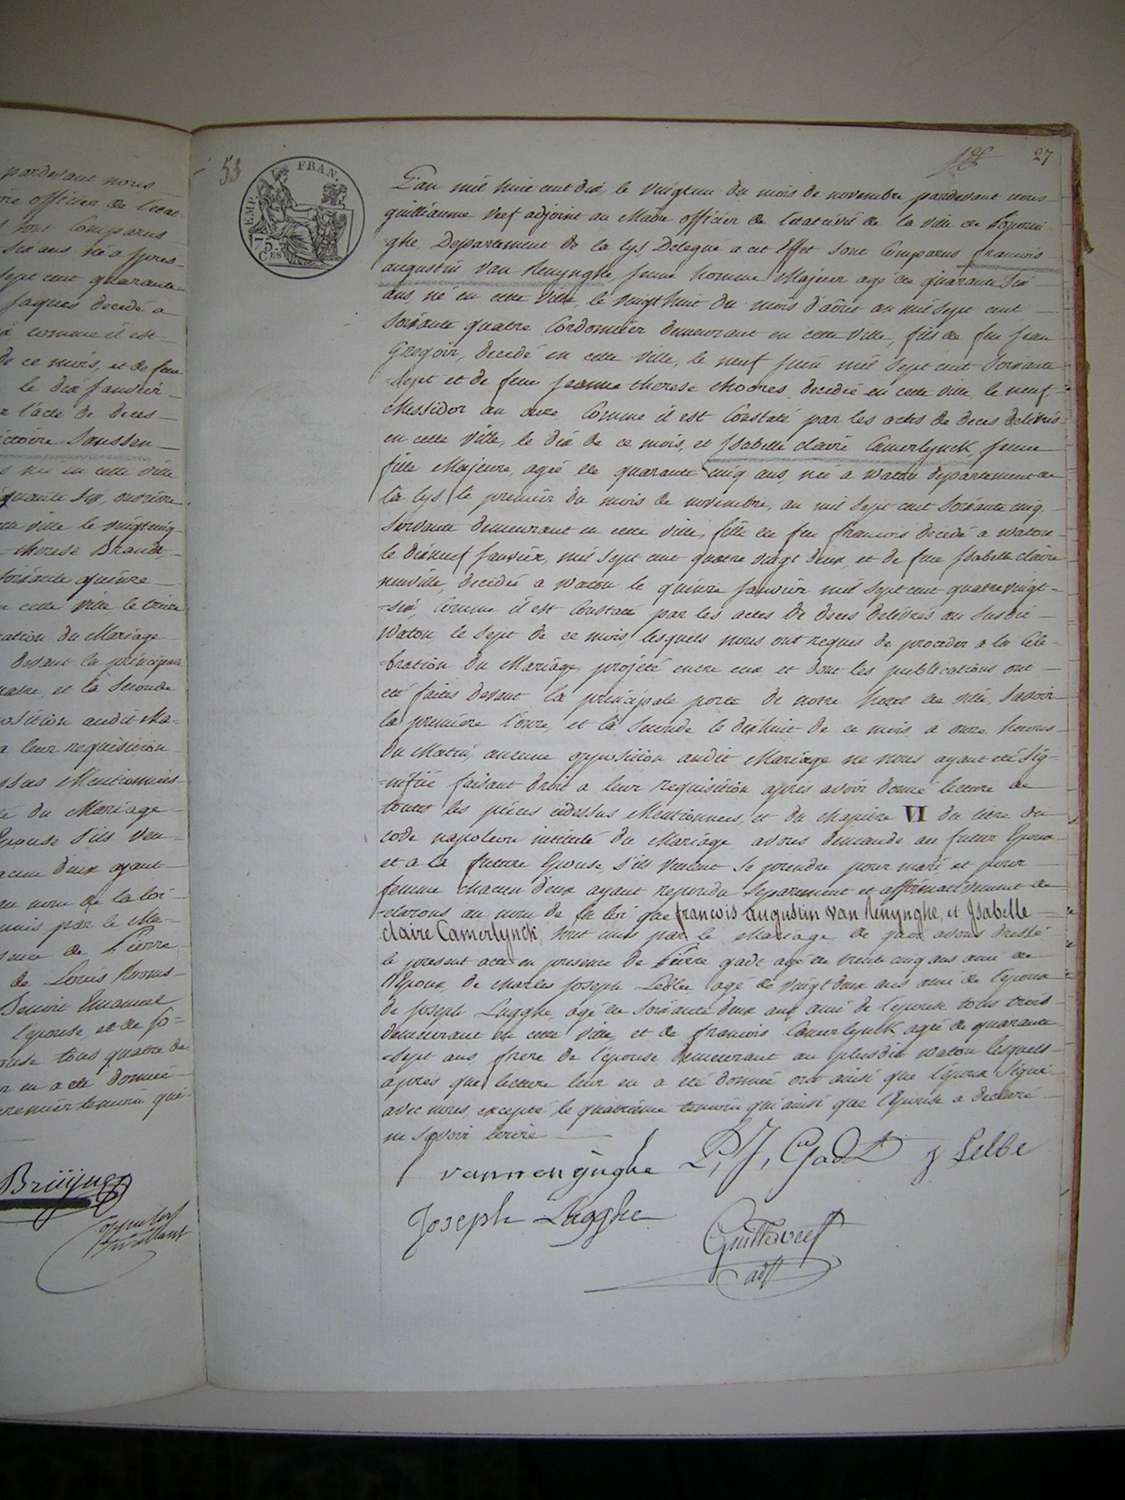 pardevant nous
officier de l'etat-
sont Comparus
six ans né a
sept cent quarante
Jaques decedé a
comme il est-
de ce mois, et de feue
le dix Janvier-
l'acte de deces-
ictoire Soussen-
né en cette ville
quante six, ouvriere
ville le vingtcinq
therese Brandt-
soixante quinze-
cette ville le trente
cation du Mariage
devant la principale
et la seconde
position audit Ma-
a leur requisition
ssus Mentionnées
du Mariage
Epouse s'ils veu-
acun deux ayant
au nom de la loi-
unis par le Ma-
sence de Pierre-
de Louis
Emanuel
l'epouse, et de Jo-
ouse tous quatre de
en a eté donneé
premier temoin qui
Brüijne
53
FRAN.
EMP.
75
CES
27
L'an mil huit cent dix le vingtun du mois de novembre pardevant nous
guilleaume Veef adjoint au Maire officier de l'état civil de la ville de Poperin-
-ghe, Departement de la Lys Delegué a cet effet sont Comparus francois
augustin van Renynghe jeune homme Majeur agé de quarante six
ans né en cette ville, le vingthuit du mois d'aôut an mil sept cent
soixante quatre Cordonnier demeurant en cette ville, fils de feu jean
Gregoir, decedé en cette ville, le neuf juin mil sept cent soixante
-sept et de feue jeanne therese Moenes, decedée en cette ville le neuf
Messidor an onze Comme il est Constaté par les actes de deces delivrés
en cette ville, le dix de ce mois, et Isabelle claire Camerlynck, jeune
fille Majeure, agée de quarante cinq ans, née a Watou departement de
la Lys le premier du mois de novembre, an mil sept cent soixante cinq,
servante demeurant en cette ville, fille de feu francois decedé a Watou
le dixneuf Janvier, mil sept cent quatre vingt deux et de feue Isabelle claire
neuville, decedée a Watou le quinze Janvier mil sept cent quatrevingt-
-six, Comme il est Constaté par les actes de deces delivrés au susdit
Watou le sept de ce mois, lesquels nous ont requis de proceder a la Cele-
-bration du Mariage projeté entre eux et dont les publications ont
été faites devant la principale porte de notre hotel de ville, savoir
la premiere l'onze, et la seconde le dixhuit de ce mois a onze heures
du Matin, aucune opposition audit Mariage ne nous ayant eté Sig-
-nifiée faisant droit a leur requisition apres avoir donné lecture de
toutes les pieces cidessus Mentionnees, et du chapitre VI du titre du
code napoleon intitulé du Mariage avons demandé au futur Epoux
et a la future Epouse, s'ils veulent se prendre pour mari et pour
femme chacun d'eux ayant repondu separement et affirmativement de-
-clarons au nom de la loi que francois augustin van Renynghe, et Isabelle
claire Camerlynck, sont unis par le Mariage, de quoi avons dressé
le present acte en presence de Pierre gadt agé de trente cinq ans ami de
l'Epoux, de charles Joseph Lelbe agé de vingtdeux ans ami de l'epoux
de Joseph Lugghe, agé de soixante deux ans ami de l'epouse tous trois
demeurant en cette ville, et de francois Camerlynck agé de quarante
-sept ans frere de l'epouse demeurant au plusdit Watou lesquels-
apres que lecture leur en a eté donneé ont ainsi que l'epoux signé
avec nous, excepté le quatrieme temoin qui ainsi que l'Epouse a declaré
ne savoir ecrire
vannenynghe P, J, Gadt J Lelbe
Joseph Lugghe
Guill Veef
adjt